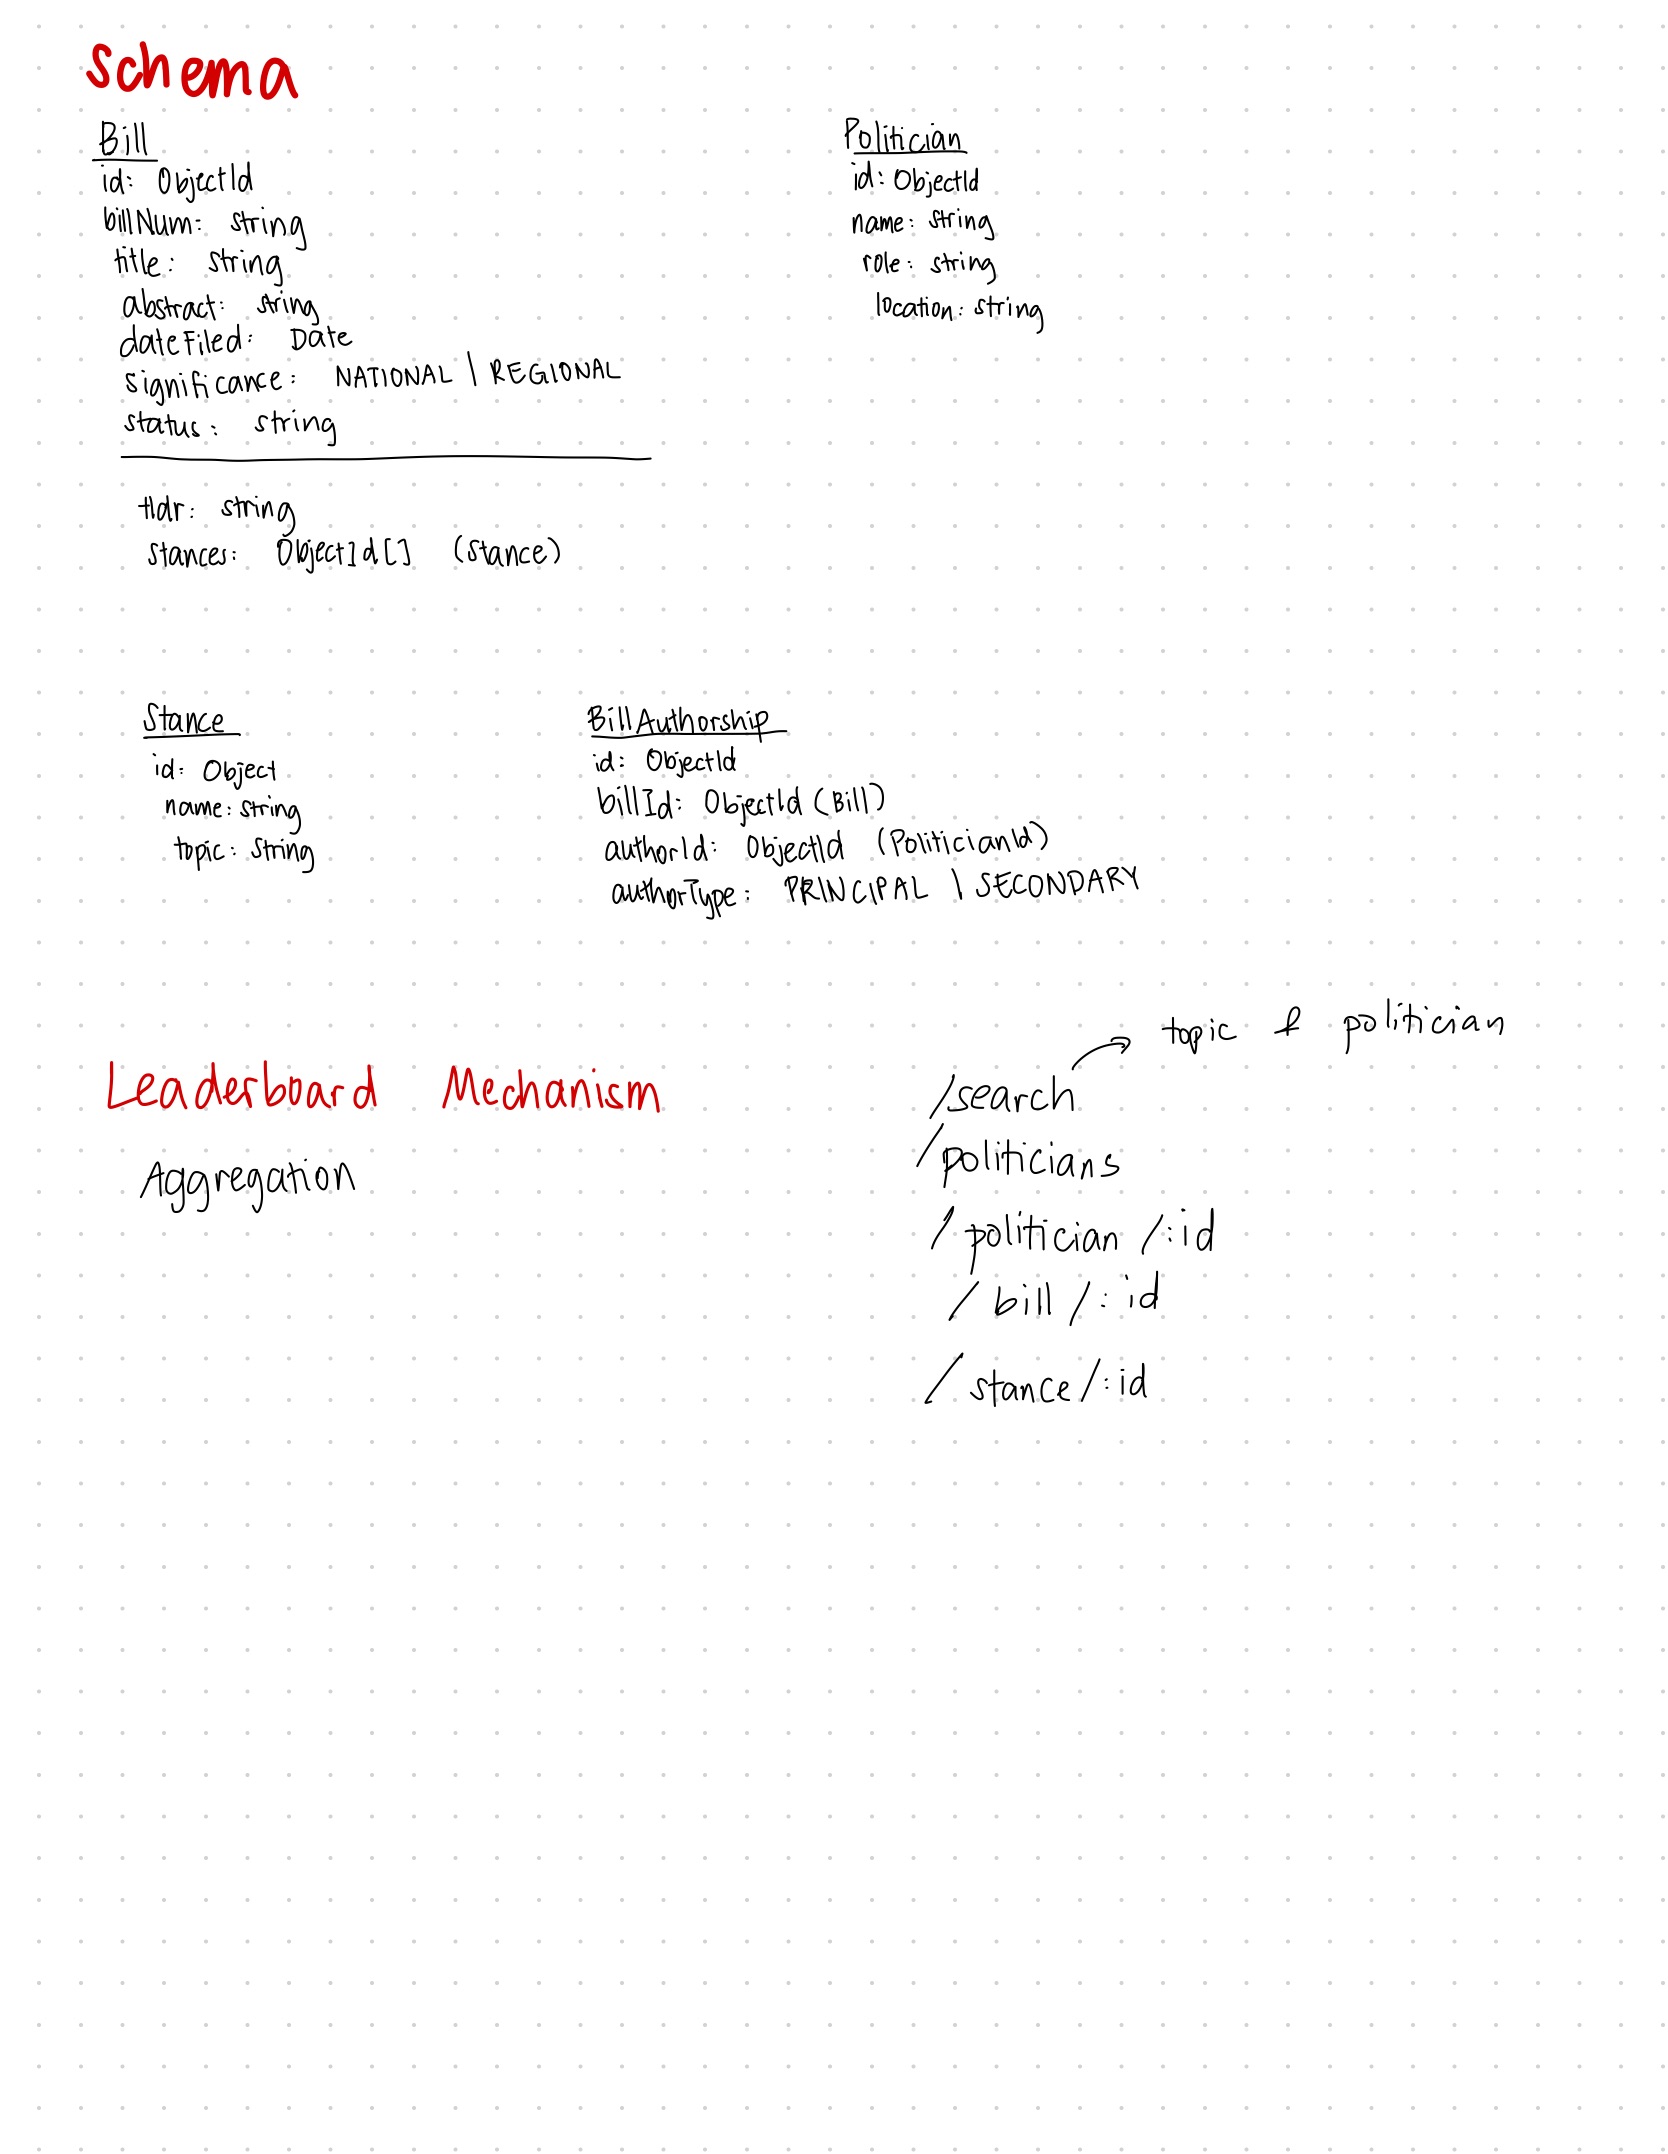 Schema
Bill
id: ObjectId
billNum: string
title: string
abstract: string
dateFiled: Date
significance: NATIONAL | REGIONAL
status: string
tldr: string
stances: ObjectId[] (Stance)
Politician
id: ObjectId
name: string
role: string
location: string
Stance
id: Object
name: string
topic: string
BillAuthorship
id: ObjectId
billId: ObjectId (Bill)
authorId: ObjectId (PoliticianId)
authorType: PRINCIPAL | SECONDARY
Leaderboard Mechanism
Aggregation
topic & politician
/search
/politicians
/politician/:id
/bill/:id
/stance/:id